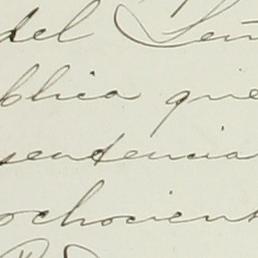 del Señ
blica que
sentencia
ochocient